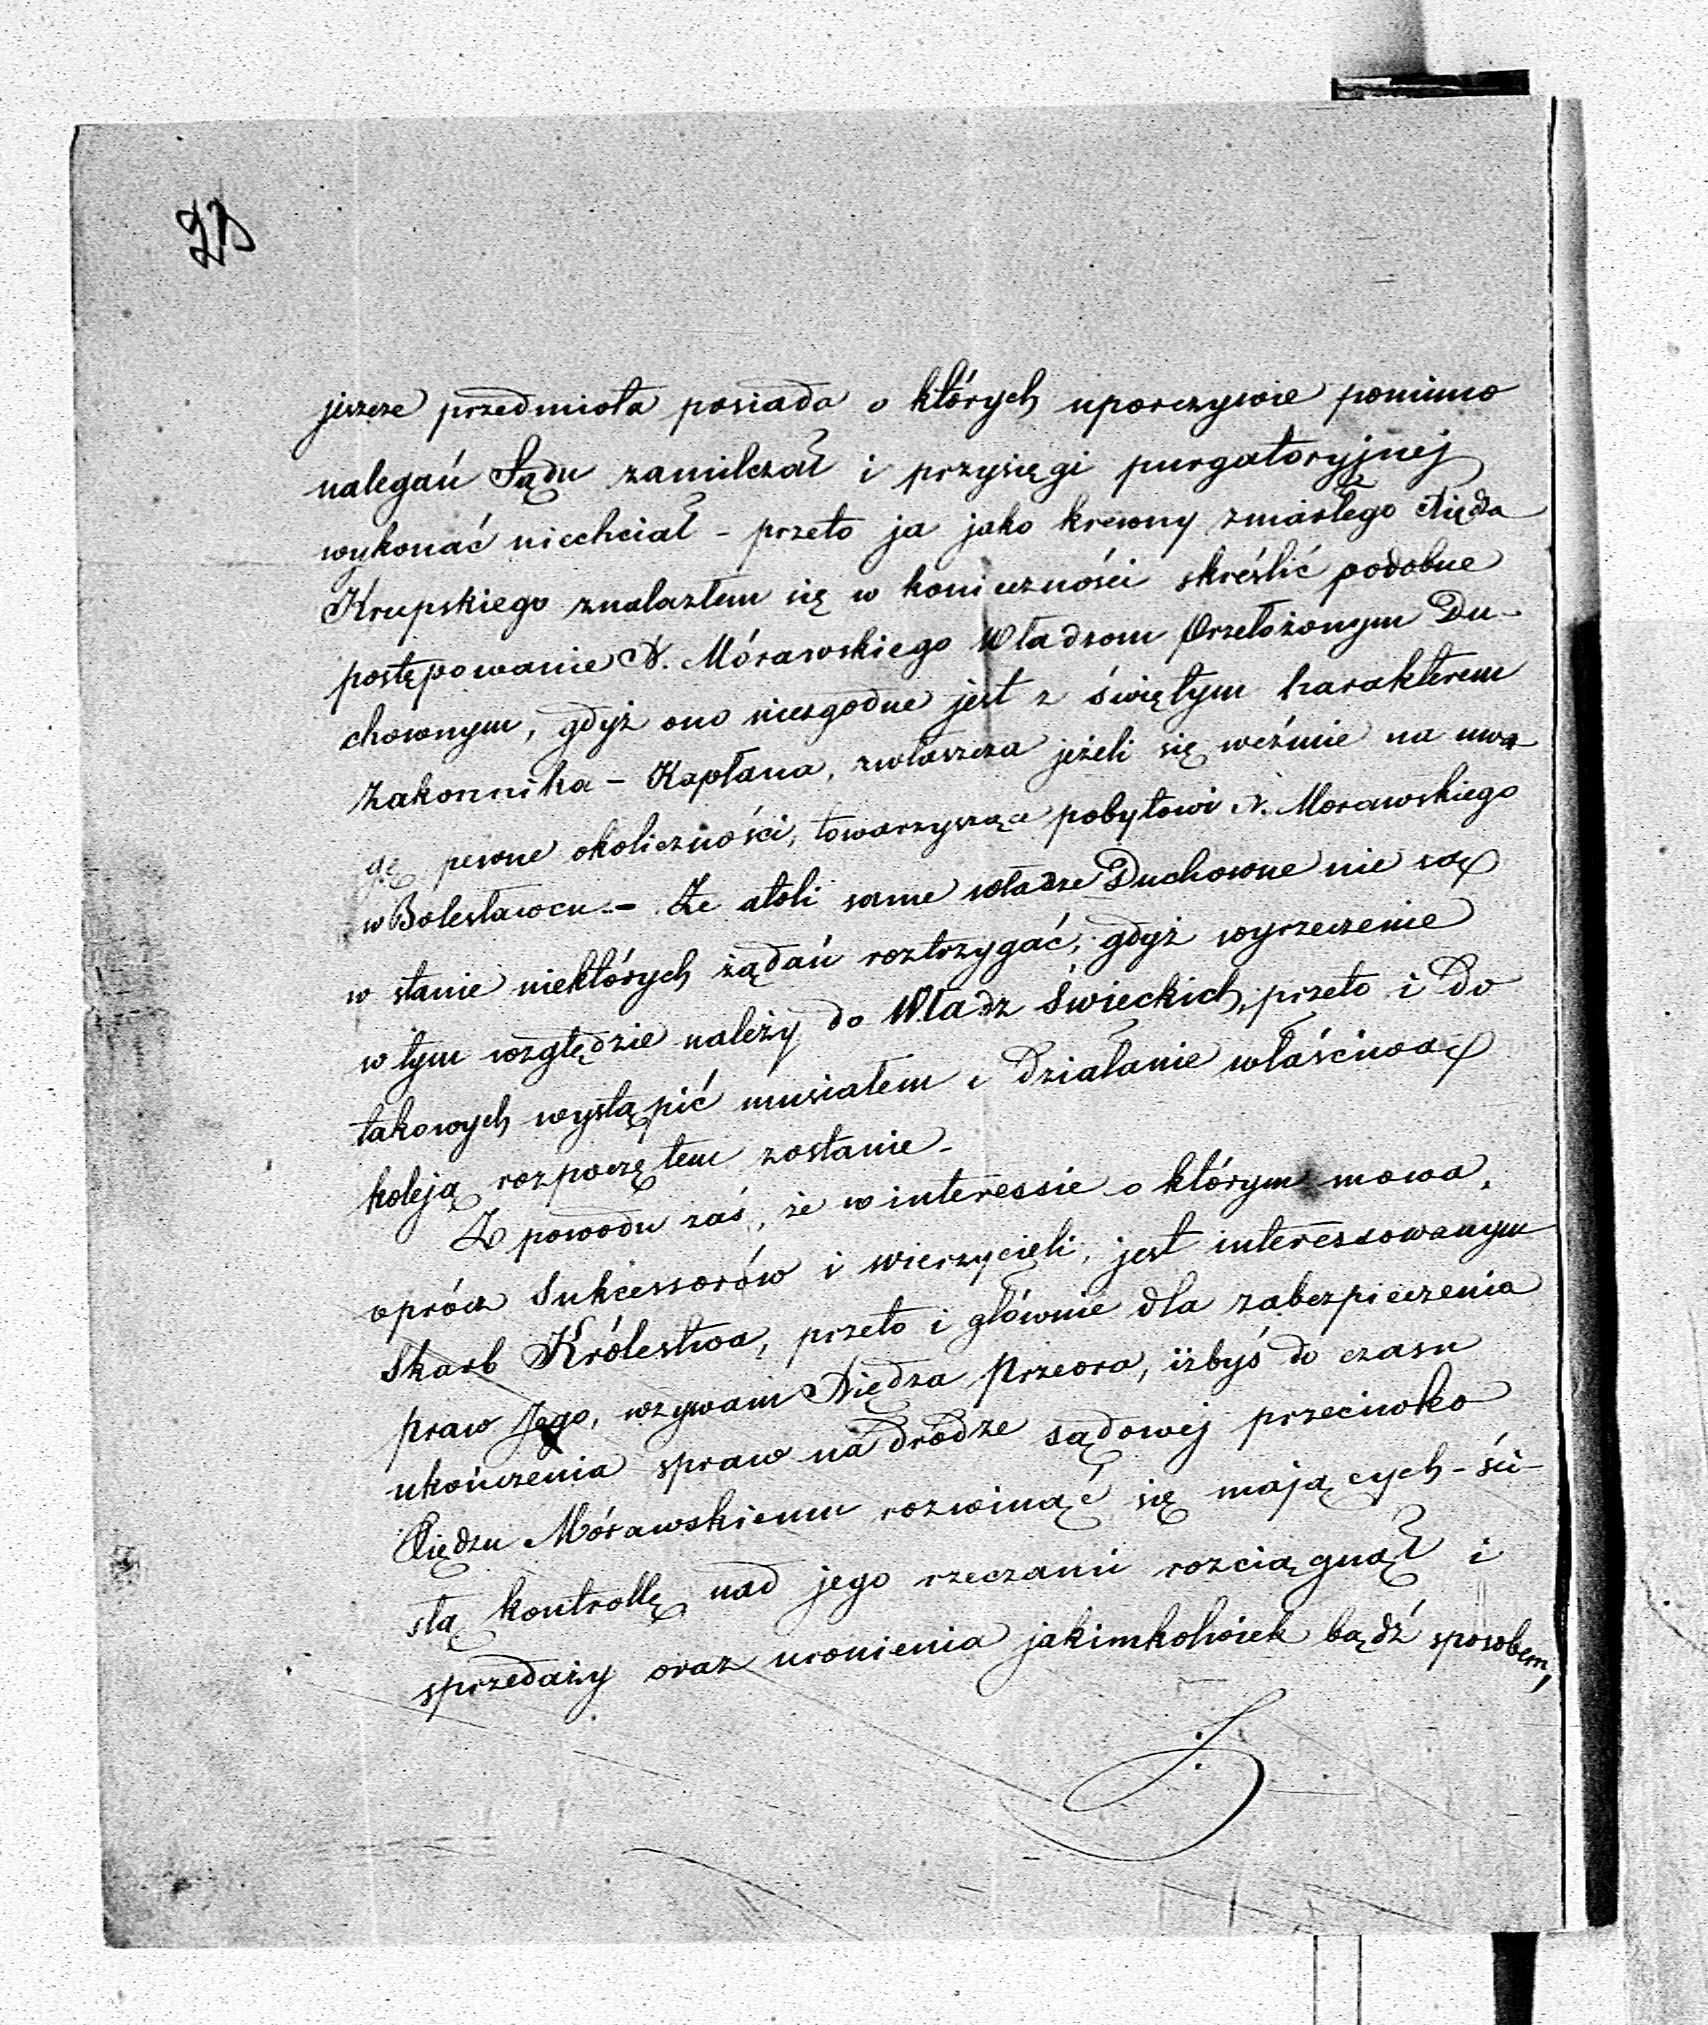 jeszcze przedmiota posiada o których uporczywie pomimo
nalegań Sądu zamilczał i przysięgi purgatoryjnej
wykonać niechciał – przeto ja jako krewny zmarłego Xiędza
Krupskiego znalazłem się w konieczności skréślić podobne
postępowanie X. Mórawskiego Władzom Przełożonym Du-
chownym, gdyż ono niezgodne jest z świętym harakterem
Zakonnika – Kapłana, zwłaszcza jeżeli się weźmie na uwa
gę pewne okoliczności, towarzyszące pobytowi X. Morawskiego
w Bolesławcu. – Że atoli same władze Duchowne nie są
w stanie niektórych żądań roztrzygać, gdyż wyrzeczenie
w tym względzie należy do Władz Świeckich, przeto i do
takowych wystąpić musiałem i działanie właściwą
koleją rozpoczętem zostanie –
Z powodu zaś, że w interessie o którym mowa,
oprócz Sukcessorów i wierzycieli, jest interessowanym
Skarb Królestwa, przeto i głównie dla zabezpieczenia
praw Jego, wzywam Xiędza Przeora, iżbyś do czasu
ukończenia spraw na drodze sądowéj przeciwko
Xiędzu Mórawskiemu rozwinąć się mających – ści-
słą kontrollę nad jego rzeczami rozciągnął i
sprzedaży oraz uronienia jakimkolwiek bądź sposobem,